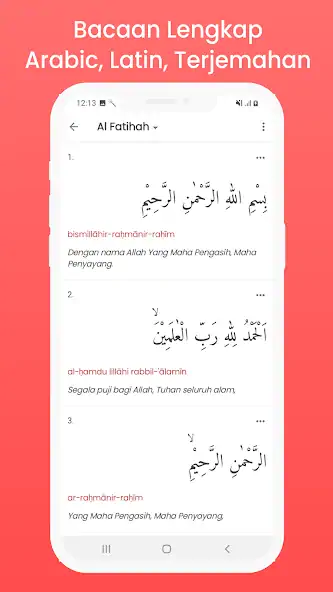 Bacaan Lengkap
Arabic, Latin, Terjemahan
12:13
Al Fatihah
1.
بِسْمِ اللّٰهِ الرَّحْمٰنِ الرَّحِيْمِ
bismillāhir-raḥmānir-raḥīm
Dengan nama Allah Yang Maha Pengasih, Maha
Penyayang.
2.
اَلْحَمْدُ لِلّٰهِ رَبِّ الْعٰلَمِيْنَۙ
al-ḥamdu lillāhi rabbil-'ālamīn
Segala puji bagi Allah, Tuhan seluruh alam,
3.
الرَّحْمٰنِ الرَّحِيْمِۙ
ar-raḥmānir-raḥīm
Yang Maha Pengasih, Maha Penyayang,